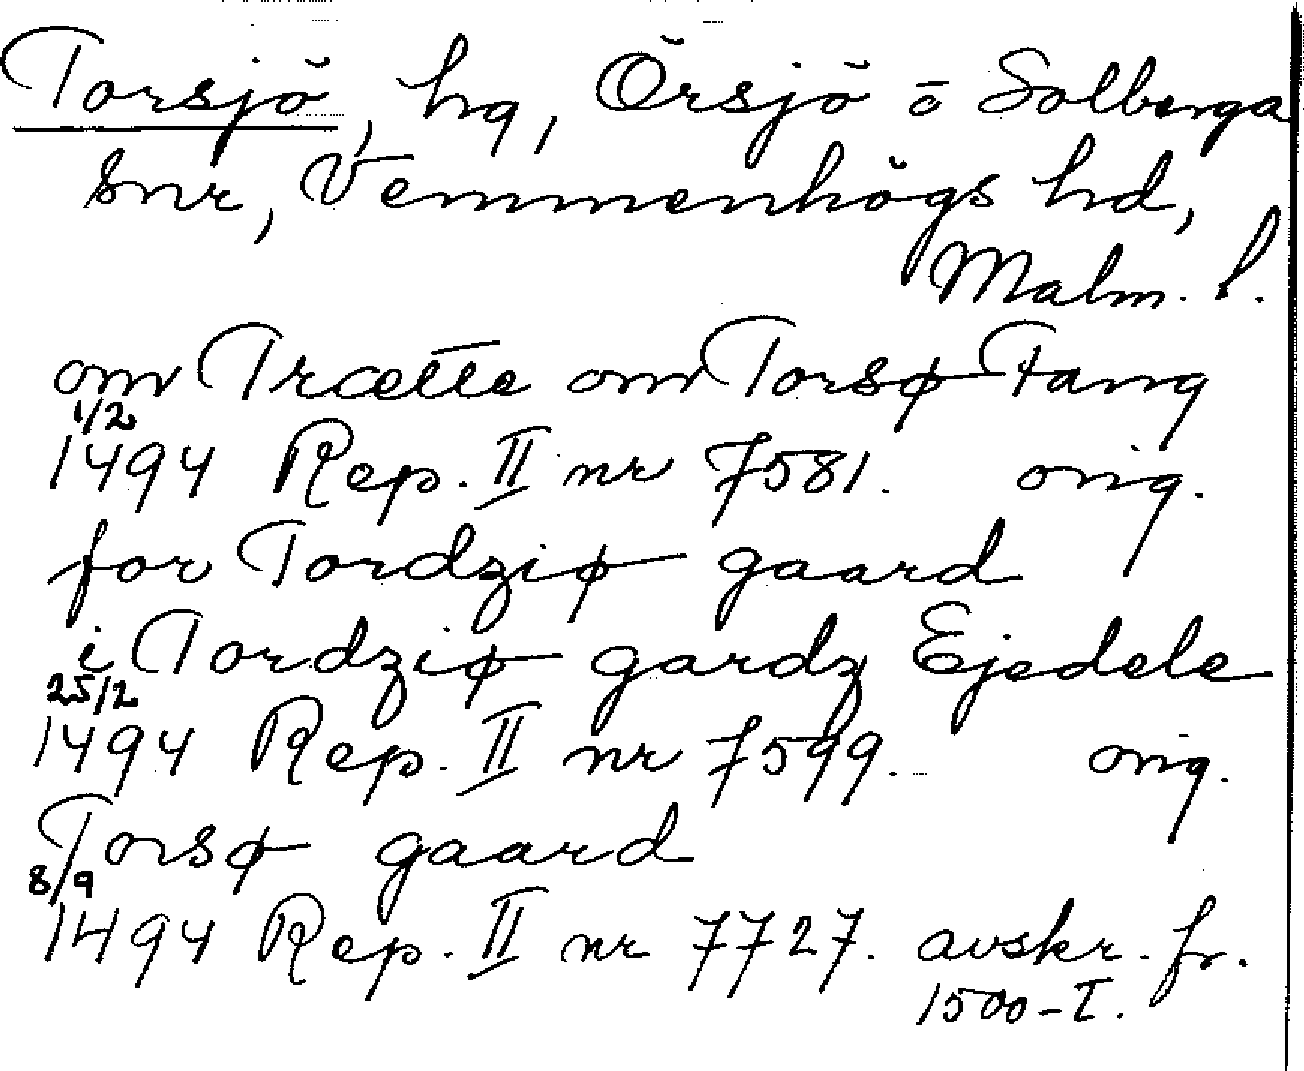 Torsjö, hg, Örsjö o Solberga
snr, Vemmenhögs hd,
Malm. l.
om Trætte om Torsø Fang
1/2
1494 Rep. II nr 7581. orig.
for Tordziø gaard
i Tordziø gardz Ejedele
25/2
1494 Rep. II nr 7599. orig.
Torsø gaard
8/9
1494 Rep. II nr 7727. avskr. fr.
1500-T.